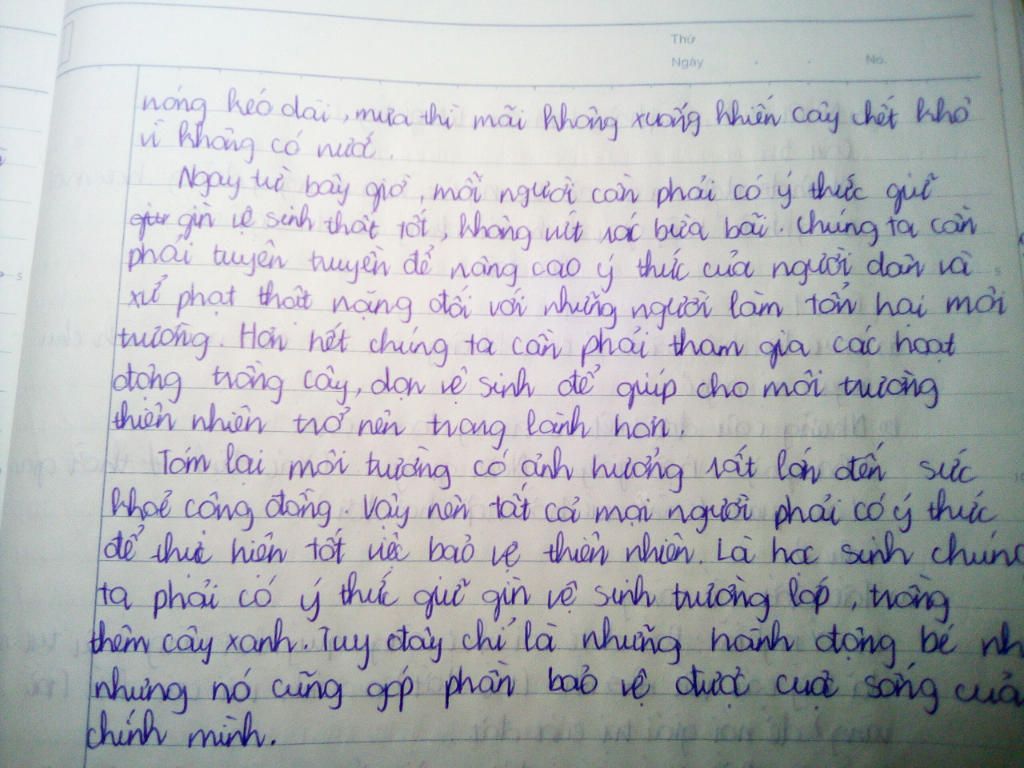 Thứ
Ngày
No.
nóng kéo dài, mưa thì mãi không xuống khiến cây chết khô
vì không có nước.
Ngay từ bây giờ, mỗi người cần phải có ý thức giữ
giữ gìn vệ sinh thật tốt, không vứt rác bừa bãi. Chúng ta cần
phải tuyên truyền để nâng cao ý thức của người dân và
xử phạt thật nặng đối với những người làm tổn hại môi
trường. Hơn hết chúng ta cần phải tham gia các hoạt
động trồng cây, dọn vệ sinh để giúp cho môi trường
thiên nhiên trở nên trong lành hơn.
Tóm lại môi trường có ảnh hưởng rất lớn đến sức
khoẻ cộng đồng. Vậy nên tất cả mọi người phải có ý thức
để thực hiện tốt việc bảo vệ thiên nhiên. Là học sinh chúng
ta phải có ý thức giữ gìn vệ sinh trường lớp, trồng
thêm cây xanh. Tuy đây chỉ là những hành động bé nh
nhưng nó cũng góp phần bảo vệ được cuộc sống của
chính mình.